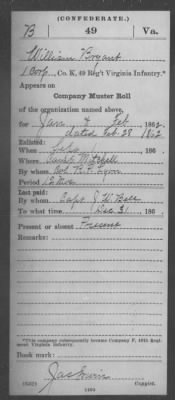 (CONFEDERATE.)
B 49 Va.
William Bryant
1 Corp, Co. K, 49 Reg't Virginia Infantry.*
Appears on
Company Muster Roll
of the organization named above,
for Jan & Feb, 1862.
dated Feb. 28 1862
Enlisted:
When 186 .
Where Camp Mitchell
By whom
Period 12 Mos
Last paid:
By whom Capt
To what time Dec 31, 186 .
Present or absent Present
Remarks:
*This company subsequently became Company F, 49th Regiment Virginia Infantry.
Book mark:
Copyist.